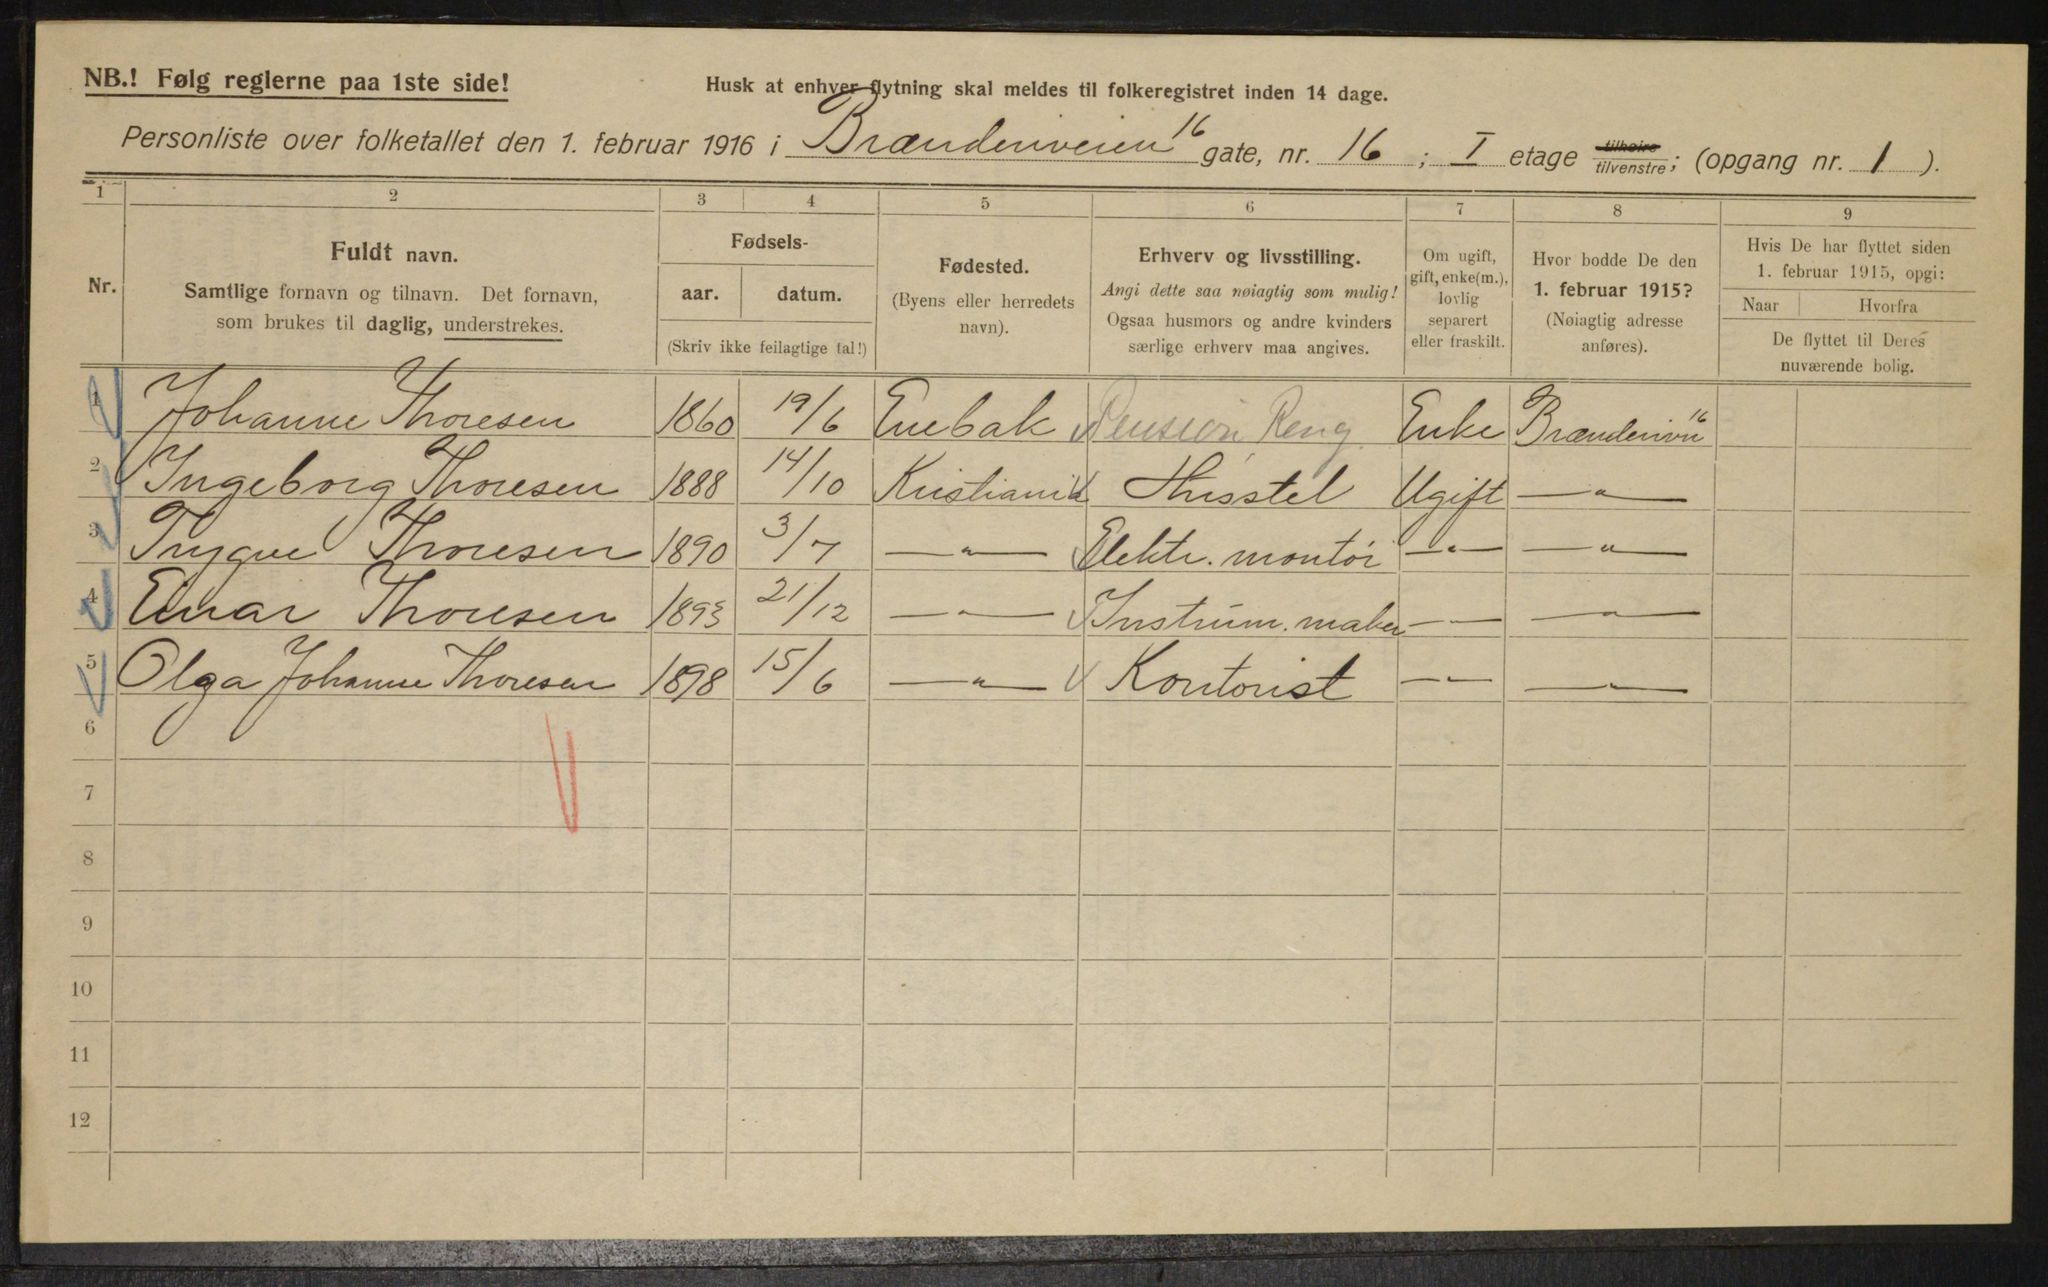 NB.! Følg reglerne paa 1ste side!
Husk at enhver flytning skal meldes til folkeregistret inden 14 dage.
Personliste over folketallet den 1. februar 1916 i Brændenveien 16 gate, nr. 16 ; I etage tilhøire tilvenstre; (opgang nr. 1 ).
1 2 3 4 5 6 7 8 9
Nr.
Fuldt navn.
Samtlige fornavn og tilnavn. Det fornavn,
som brukes til daglig, understrekes.
Fødsels-
aar. datum.
(Skriv ikke feilagtige tal!)
Fødested.
(Byens eller herredets
navn).
Erhverv og livsstilling.
Angi dette saa nøiagtig som mulig!
Ogsaa husmors og andre kvinders
særlige erhverv maa angives.
Om ugift,
gift, enke(m.),
lovlig
separert
eller fraskilt.
Hvor bodde De den
1. februar 1915?
(Nøiagtig adresse
anføres).
Hvis De har flyttet siden
1. februar 1915, opgi:
Naar Hvorfra
De flyttet til Deres
nuværende bolig.
1 Johanne Thoresen 1860 19/6 Enebak Pension Reng. Enke Brændenvn 16
2 Ingeborg Thoresen 1888 14/10 Kristiania Husstel Ugift —"—
3 Trygve Thoresen 1890 3/7 —"— Elektr. montör —"— —"—
4 Einar Thoresen 1893 21/12 —"— Instrum. maker —"— —"—
5 Olga Johanne Thoresen 1898 15/6 —"— Kontorist —"— —"—
6
7
8
9
10
11
12